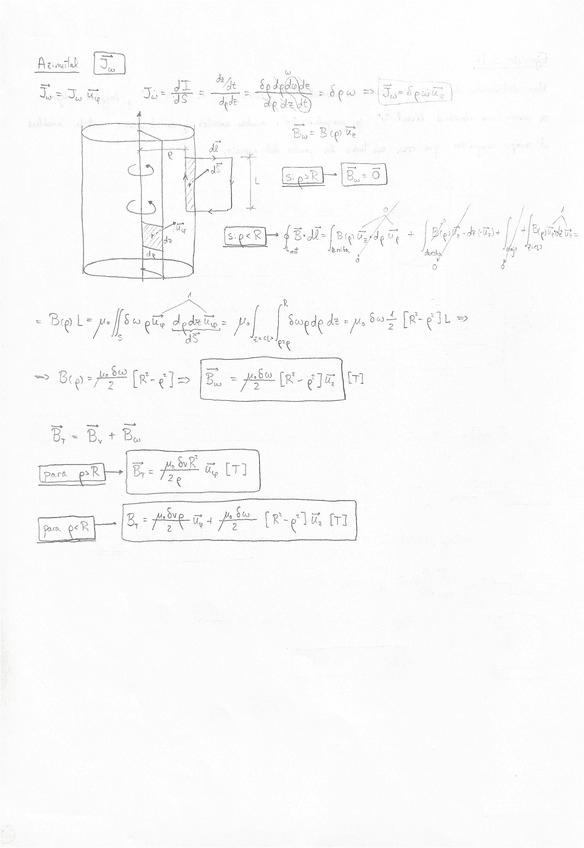 Azimutal J⃗ω
J⃗ω = Jω u⃗φ   Jω = dI/dS = (dq/dt)/(dρdz) = (δρ dρ dφ dz)/(dρ dz dt) = δρω ⇒ J⃗ω = δρω u⃗φ
B⃗ω = B(ρ) u⃗z
ρ dl⃗ dS⃗ L
si ρ>R → B⃗ω = 0⃗
u⃗φ dz dρ
si ρ<R → ∮ B⃗·dl⃗ = ∫ B(ρ) u⃗z · dρ u⃗ρ + ∫ B(ρ) u⃗z · dz(-u⃗z) + ∫ + ∫ B(ρ) u⃗z dz u⃗z =
= B(ρ) L = μ₀ ∬S δωρ u⃗φ dρdz u⃗φ = μ₀ ∫ ∫ δωρ dρ dz = μ₀ δω 1/2 [R² - ρ²] L ⇒
dS⃗ R ρ=ρ
⇒ B(ρ) = μ₀δω/2 [R² - ρ²] ⇒ B⃗ω = μ₀δω/2 [R² - ρ²] u⃗z [T]
B⃗T = B⃗v + B⃗ω
para ρ>R → B⃗T = μ₀δvR²/2ρ u⃗φ [T]
para ρ<R → BT = μ₀δvρ/2 u⃗φ + μ₀δω/2 [R² - ρ²] u⃗z [T]